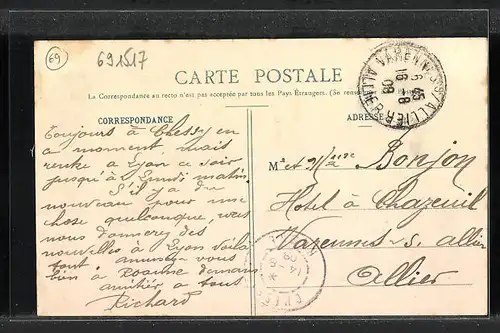 69
691517
CARTE POSTALE
La Correspondance au recto n'est pas acceptée par tous les Pays Étrangers. (Se rens
CORRESPONDANCE
ADRESSE
VARENNES S/ ALLIER
ALLIER
6 45
16 -8
09
Toujours à Chessy en
a moment, mais
rentre a Lyon ce soir
jusqu'à Lundi matin.
S'il y a du
nouveau pour une
chose quelconque, vous
nous donnerez des
nouvelles à Lyon. Voila
tout. amusez vous
bien à Roanne demain
amitiés a tous
Richard
Mr et Mme Bonjon
Hotel à Chazeuil
Varennes-s. allier
Allier